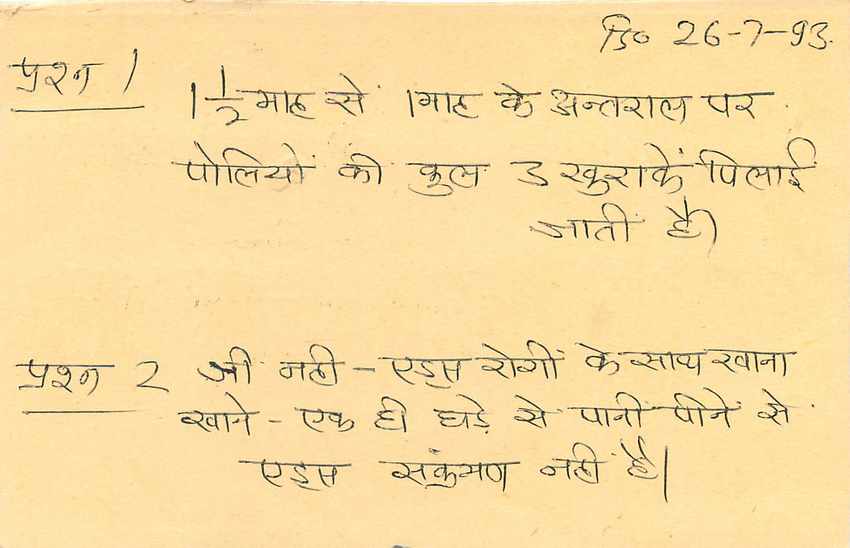 दि० 26-7-93.
प्रश्न 1
1 1/2 माह से 1माह के अन्तराल पर
पोलियों की कुल 3 खुराकें पिलाई
जाती है।
प्रश्न 2 जी नही - एड्स रोगी के साथ खाना
खाने - एक ही घड़े से पानी पीने से
एड्स संक्रमण नही है।